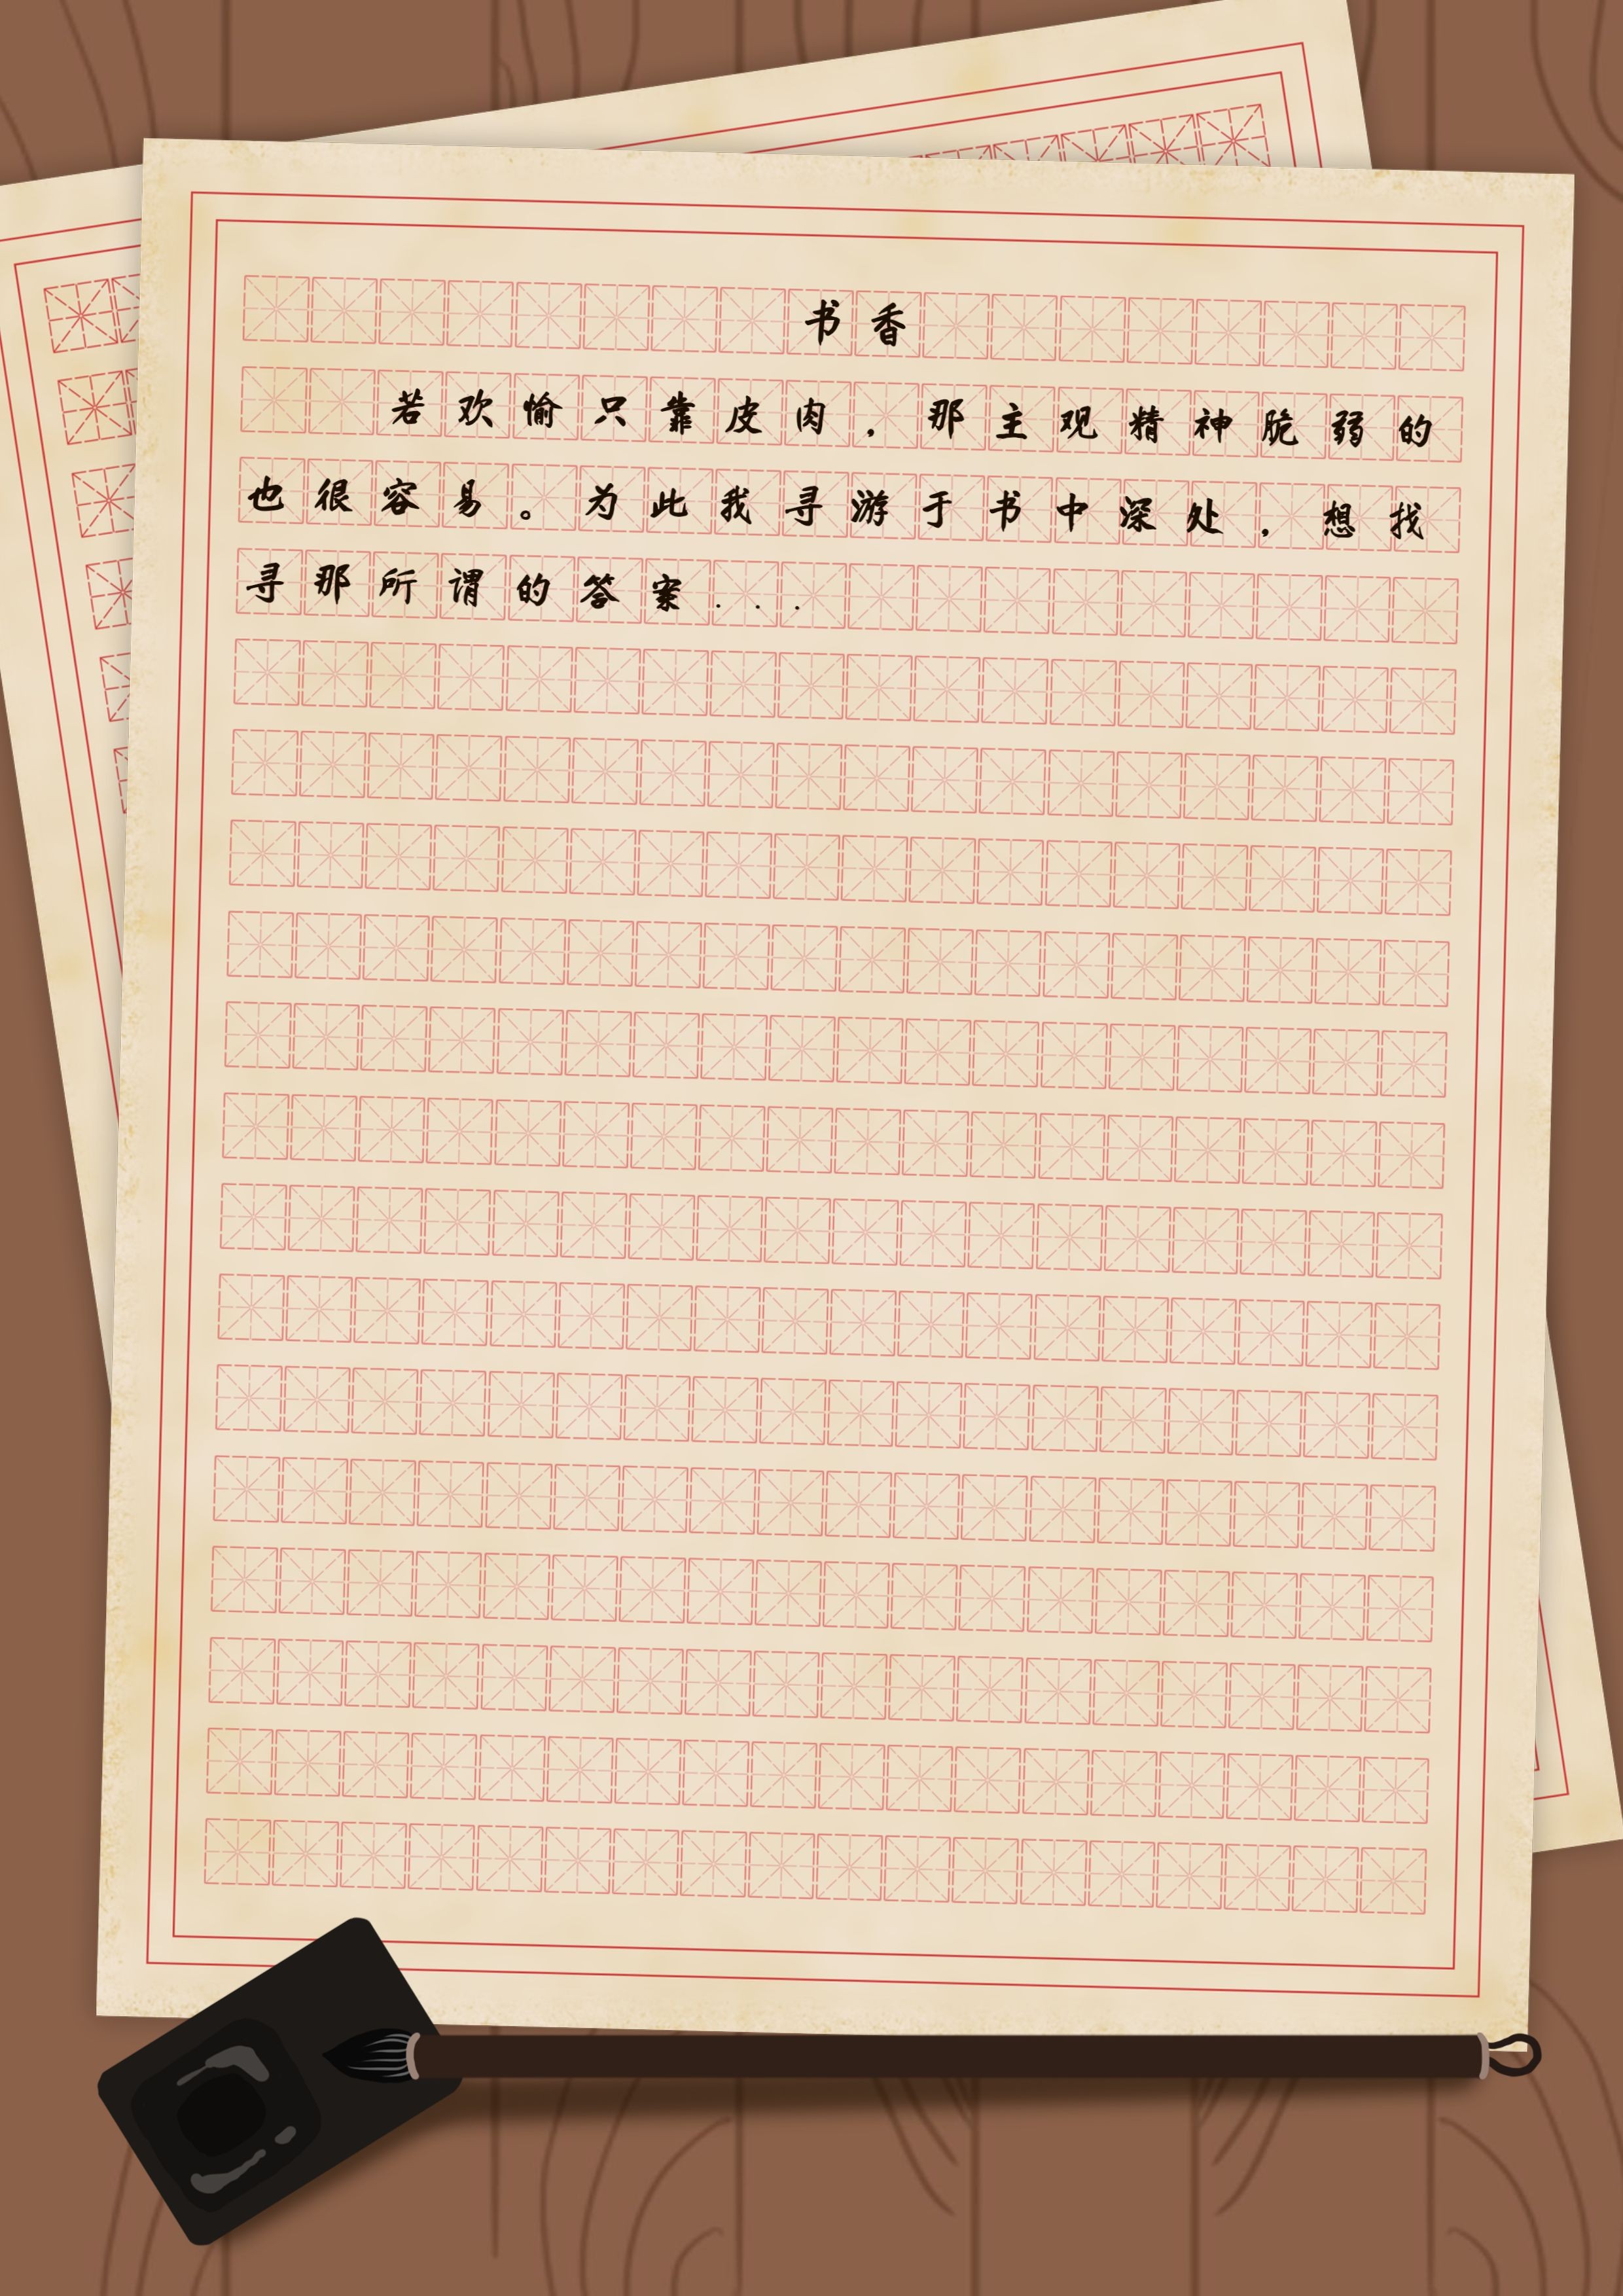 书香
若欢愉只靠皮肉，那主观精神脆弱的
也很容易。为此我寻游于书中深处，想找
寻那所谓的答案...